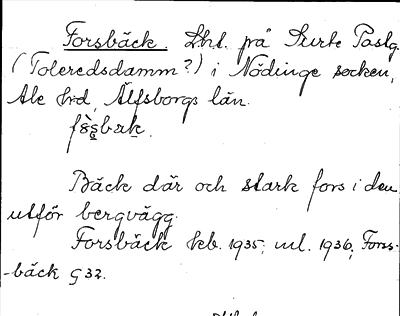 Forsbäck. Lht. på Surte Paslg.
(Toleredsdamm?) i Nödinge socken,
Ale hrd, Älfsborgs län.
Bäck där och stark fors i den
utför bergvägg.
Forsbäck keb. 1935; ml. 1936; Fors-
-bäck G 32.